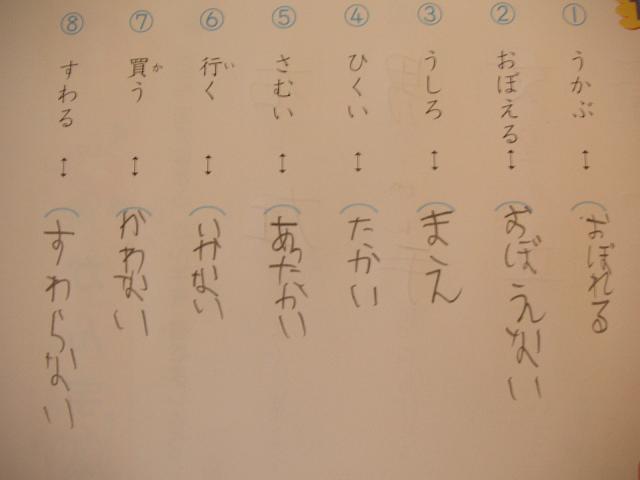 ① うかぶ ↔ (おぼれる
② おぼえる ↔ (おぼえない
③ うしろ ↔ (まえ
④ ひくい ↔ (たかい
⑤ さむい ↔ (あったかい
⑥ 行く い ↔ (いかない
⑦ 買う か ↔ (かわない
⑧ すわる ↔ (すわらない